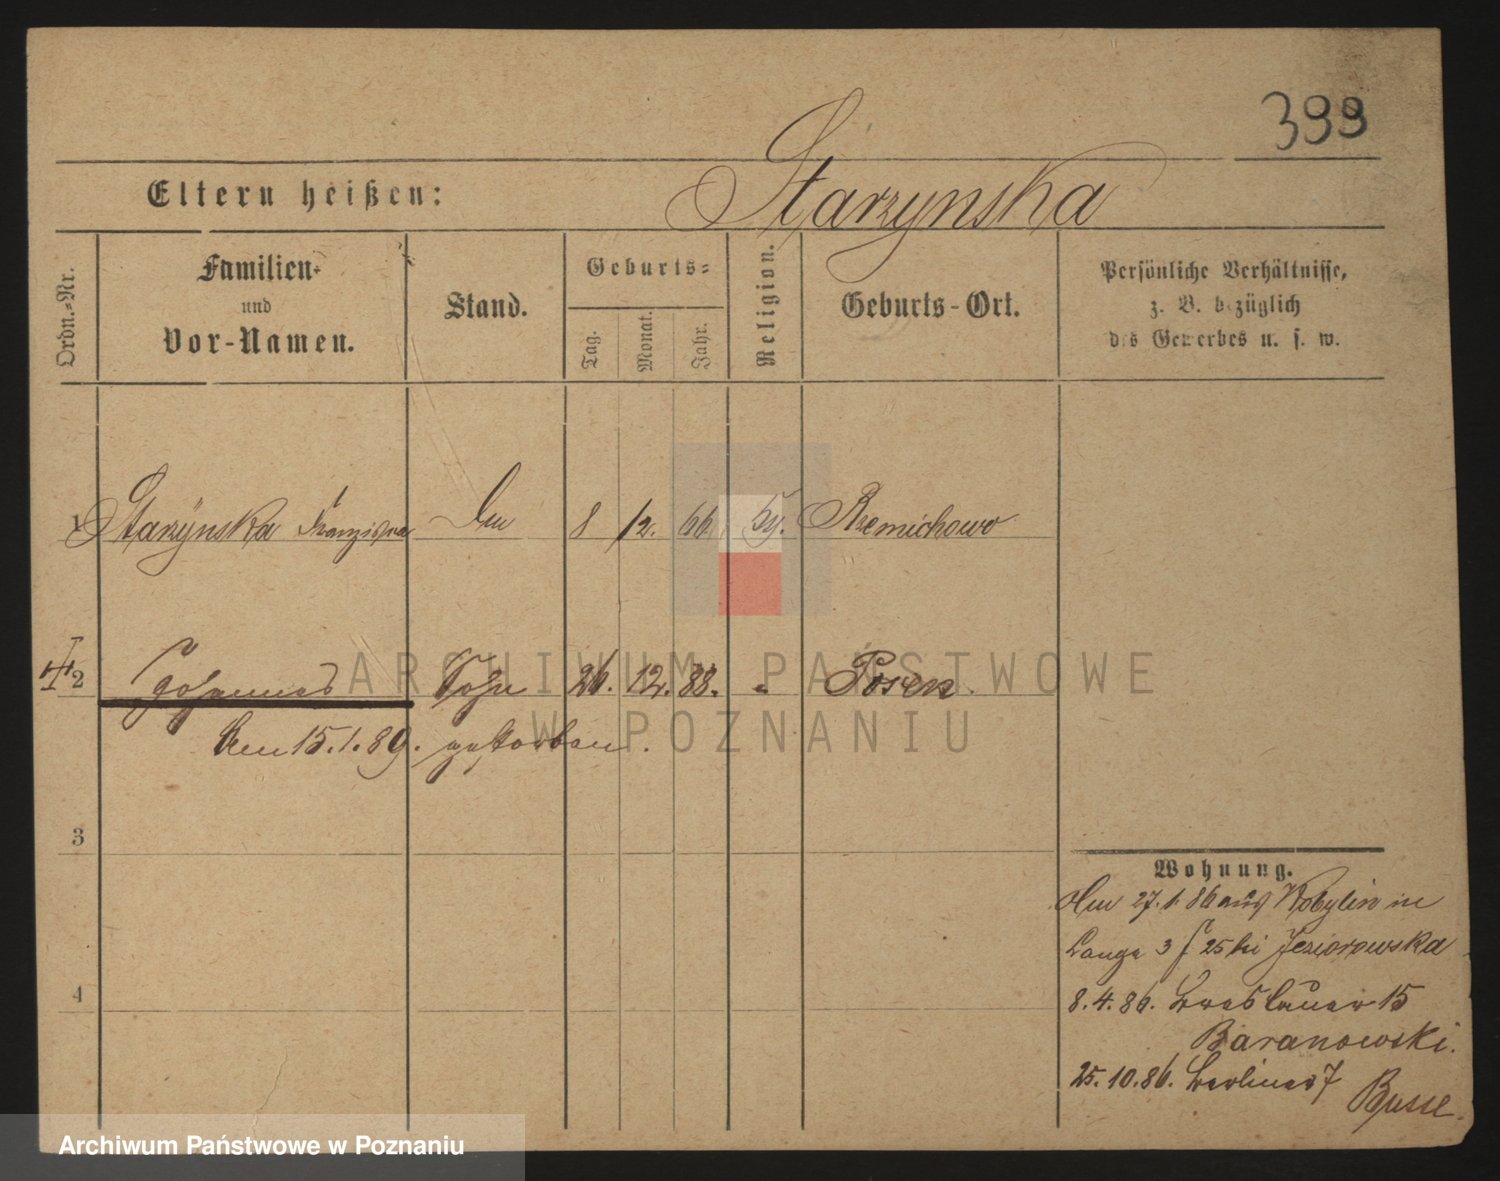 399
Starzynska
Eltern heißen:
Ordn.-Nr.
Familien-
und
Vor-Namen.
Stand.
Geburts-
Tag.
Monat.
Jahr.
Religion.
Geburts-Ort.
Persönliche Verhältnisse,
z. B. bezüglich
des Gewerbes u. s. w.
1 Starzÿnska Franziska 8 12. 66. Rzemichowo
2 Johannes Sohn 26. 12. 88. " Posen
Am 15.1.89. gestorben.
3
4
Wohnung.
Am 27.1.86 aus Kobylin in
Lange 3 25 bei Jeziorowska
8.4.86. Breslauer 15
Baranowski.
25.10.86. Berliner 7
Busse.
ARCHIWUM PAŃSTWOWE
W POZNANIU
Archiwum Państwowe w Poznaniu